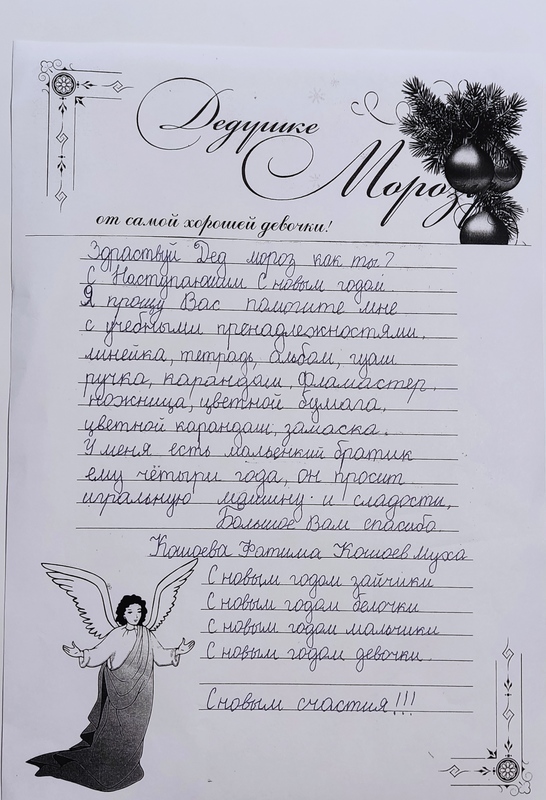 Дедушке
Морозу
от самой хорошей девочки!
Здраствуй Дед мороз как ты?
С Наступаюшим С новым годом.
Я прошу Вас помогите мне
с учебными пренадлежностями,
линейка, тетрадь, альбом, гуаш
ручка, карандаш, фламастер,
ножница, цветной бумага,
цветной карандаш, замаска.
У меня есть маленкий братик
ему чётыри года, он просит
игральную машину и сладости,
Большое Вам спасибо.
Кошоева Фатима Кошоев Муха
С новым годом зайчики
С новым годом белочки
С новым годом мальчики
С новым годом девочки.
С новым счастия!!!